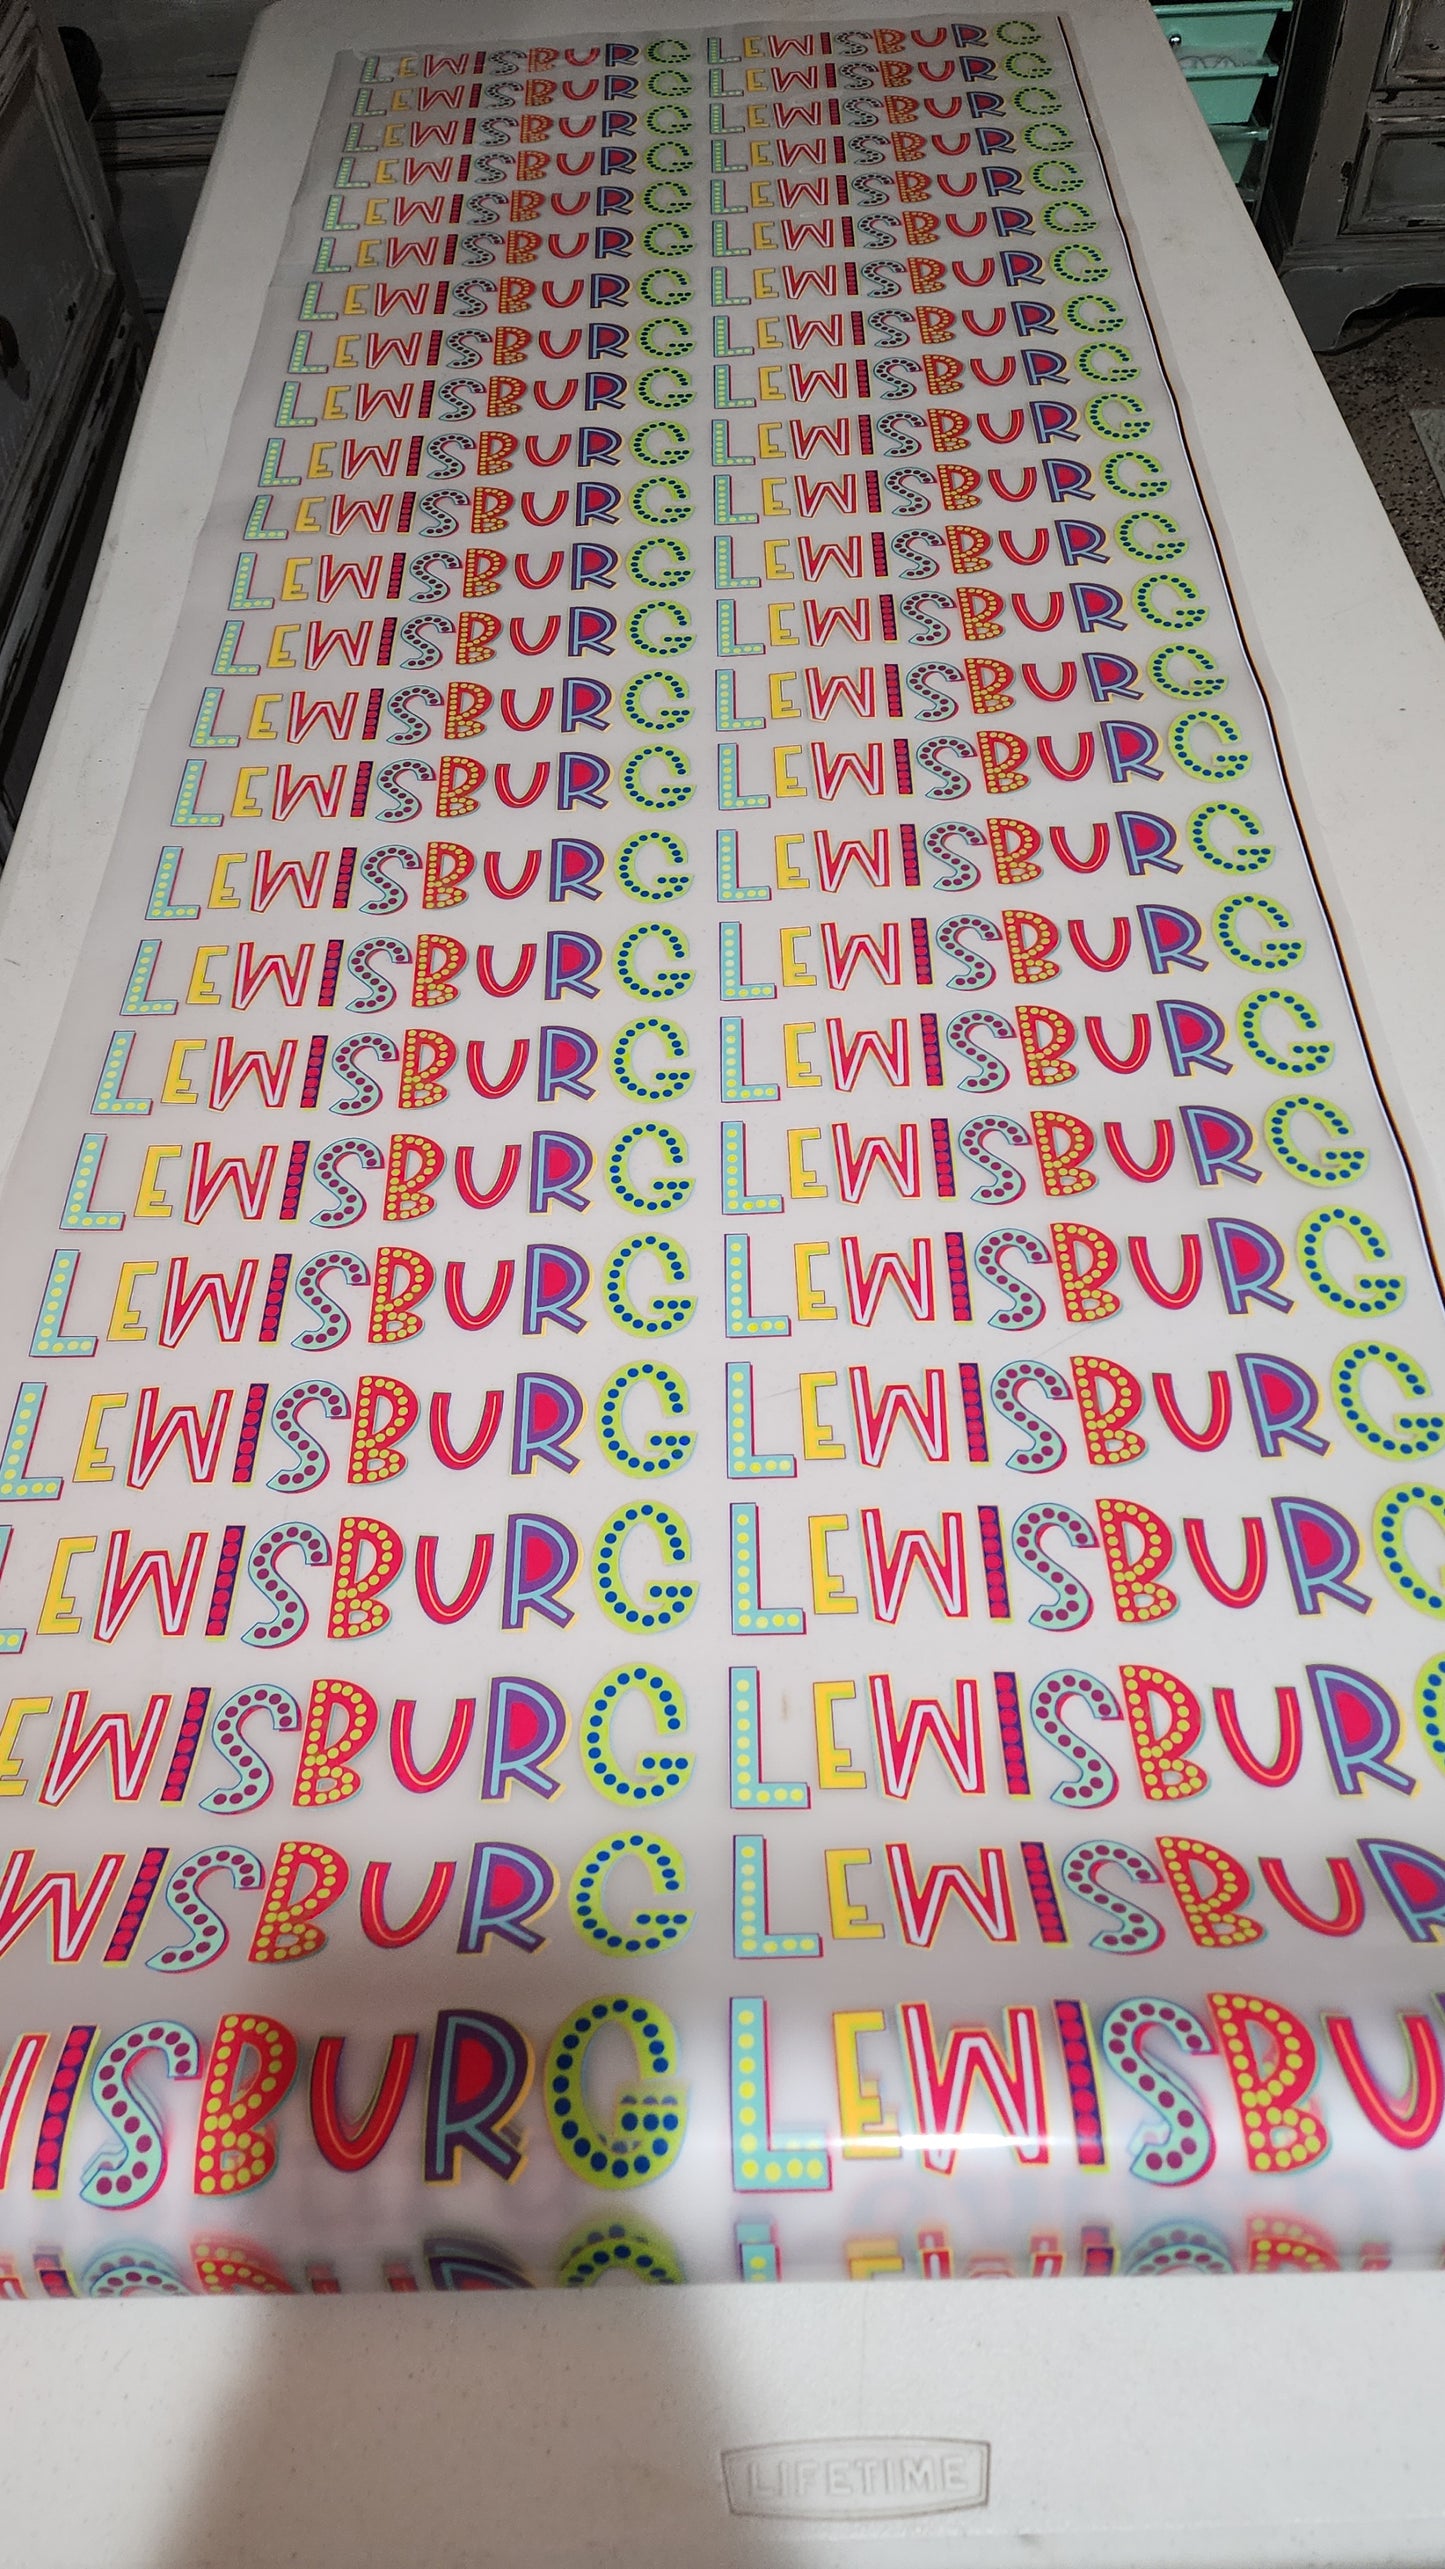 LEWISBURG LEWISBURG
LEWISBURG LEWISBURG
LEWISBURG LEWISBURG
LEWISBURG LEWISBURG
LEWISBURG LEWISBURG
LEWISBURG LEWISBURG
LEWISBURG LEWISBURG
LEWISBURG LEWISBURG
LEWISBURG LEWISBURG
LEWISBURG LEWISBURG
LEWISBURG LEWISBURG
LEWISBURG LEWISBURG
LEWISBURG LEWISBURG
LEWISBURG LEWISBURG
LEWISBURG LEWISBURG
LEWISBURG LEWISBURG
LEWISBURG LEWISBURG
LEWISBURG LEWISBURG
LEWISBURG LEWISBURG
LEWISBURG LEWISBURG
LEWISBURG LEWISBURG
LEWISBURG LEWISBURG
EWISBURG LEWISBUR
WISBURG LEWISBUR
ISBURG LEWISBU
LIFETIME